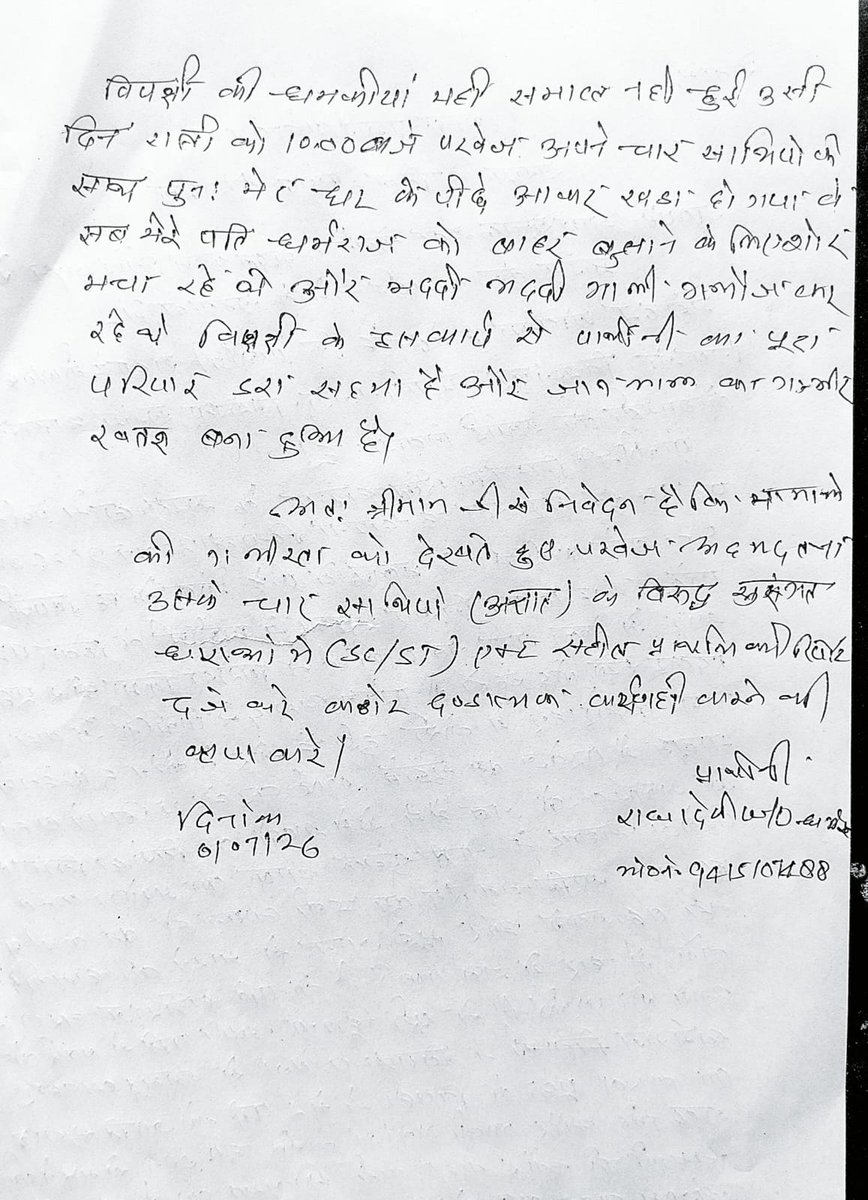 विपक्षी की धमकीयां यही समाप्त नही हुई उसी
दिन रात्री को 10.00 बजे परवेज अपने चार साथियो के
साथ पुनः मेरे घर के पीछे आकर खडा हो गया वे
सब मेरे पति धर्मराज को बाहर बुलाने के लिए शोर
मचा रहे थे और भददी भददी गाली गलौज कर
रहे थे विपक्षी के इस कार्य से प्रार्थीनी का पूरा
परिवार डरा सहमा है और जान माल का गम्भीर
खतरा बना हुआ है।
अतः श्रीमान जी से निवेदन है कि मामले
की गम्भीरता को देखते हुए परवेज अहमद तथा
उसके चार साथियो (अज्ञात) के विरूद्ध सुसंगत
धाराओ मे (SC/ST) एक्ट सहित प्राथमिकी रिपोर्ट
दर्ज करे कठोर दण्डात्मक कार्यवाही करने की
कृपा करे।
प्रार्थीनी
दिनांक
देवी W/O
मो०न०